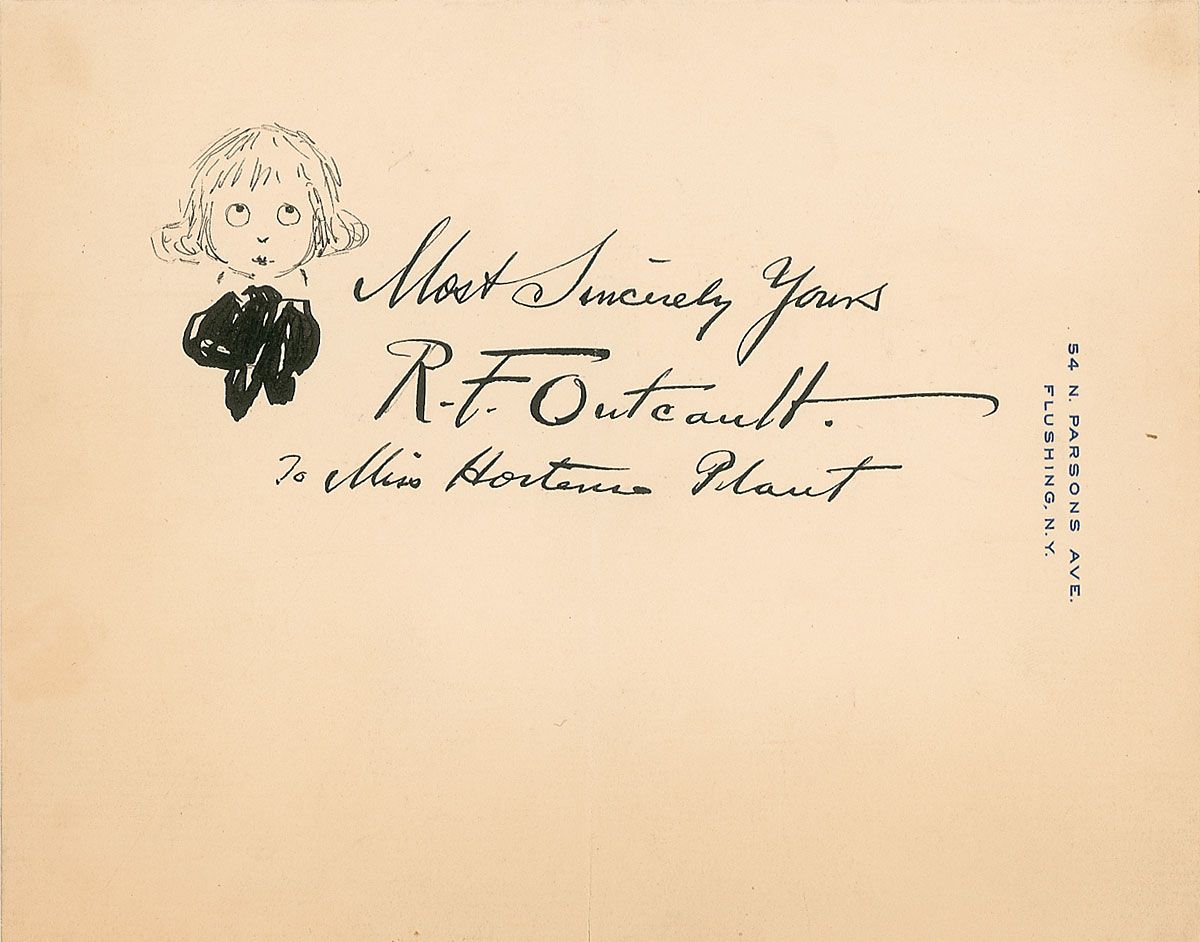 Most Sincerely Yours
R.F. Outcault.
To Miss Hortense Plaut
54 N. PARSONS AVE.
FLUSHING, N.Y.